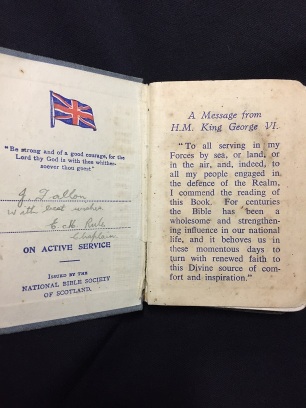 "Be strong and of a good courage, for the
Lord thy God is with thee whither-
soever thou goest"
J. Fallon
With best wishes
Chaplain
ON ACTIVE SERVICE
ISSUED BY THE
NATIONAL BIBLE SOCIETY
OF SCOTLAND.
A Message from
H.M. King George VI.
"To all serving in my
Forces by sea, or land, or
in the air, and, indeed, to
all my people engaged in
the defence of the Realm,
I commend the reading of
this Book. For centuries
the Bible has been a
wholesome and strengthen-
ing influence in our national
life, and it behoves us in
these momentous days to
turn with renewed faith to
this Divine source of com-
fort and inspiration."